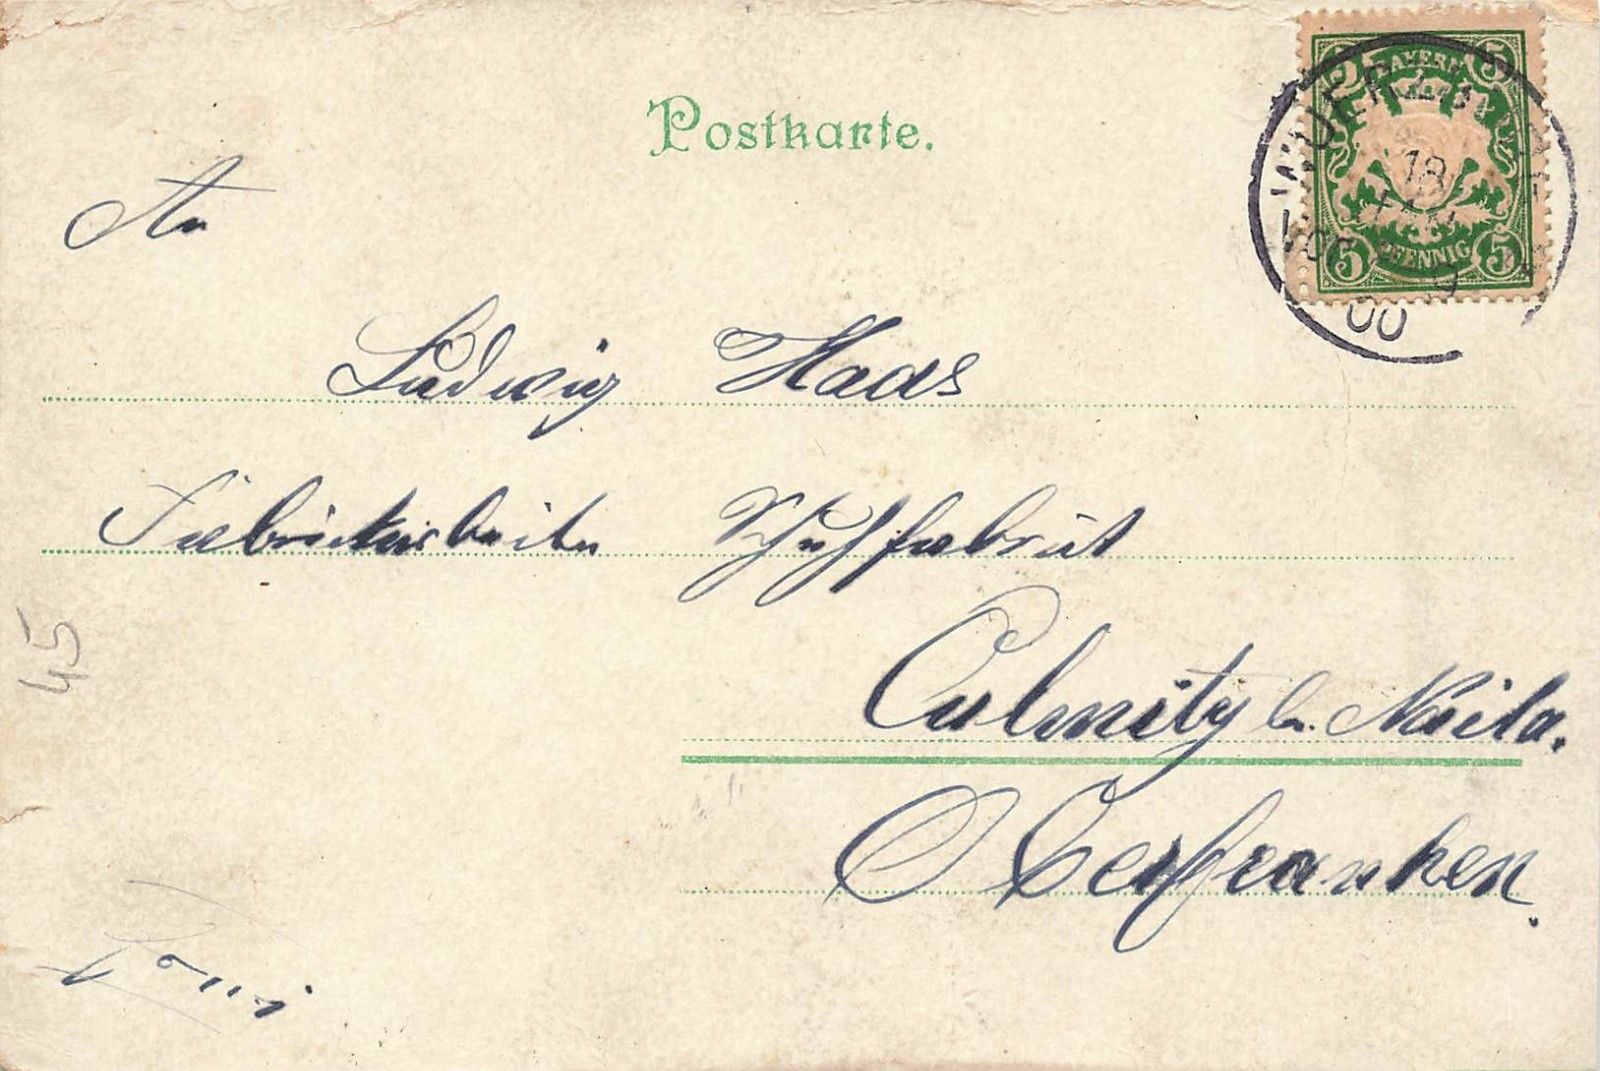 Postkarte.
5 BAYERN 5
5 PFENNIG 5
18
00
An
Ludwig Haas
Fabrikarbeiter Schuhfabrik
Culmitz b. Naila.
Oberfranken.
45